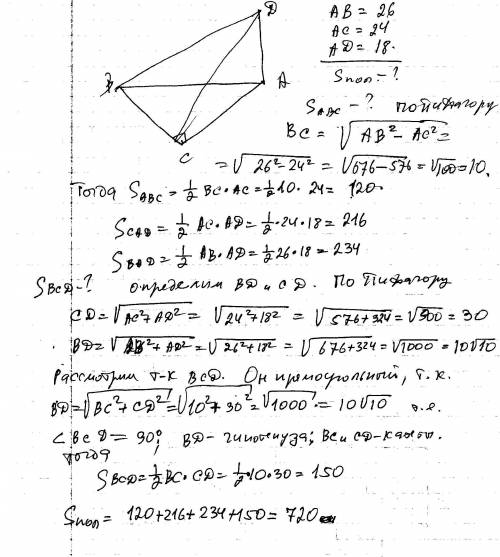 D
B
A
C
AB = 26
AC = 24
AD = 18.
Sпол - ?
S_ABC - ? по Пифагору
BC = √AB² - AC² =
= √26² - 24² = √676 - 576 = √100 = 10.
Тогда S_ABC = 1/2 BC · AC = 1/2 10 · 24 = 120.
S_CAD = 1/2 AC · AD = 1/2 · 24 · 18 = 216
S_BAD = 1/2 AB · AD = 1/2 26 · 18 = 234
S_BCD - ? определим BD и CD. По Пифагору
CD = √AC² + AD² = √24² + 18² = √576 + 324 = √900 = 30
BD = √AB² + AD² = √26² + 18² = √676 + 324 = √1000 = 10√10
Рассмотрим т-к BCD. Он прямоугольный, т.к.
BD = √BC² + CD² = √10² + 30² = √1000 = 10√10 т.е.
∠BCD = 90°; BD - гипотенуза; BC и CD - катет.
тогда
S_BCD = 1/2 BC · CD = 1/2 · 10 · 30 = 150
Sпол = 120 + 216 + 234 + 150 = 720